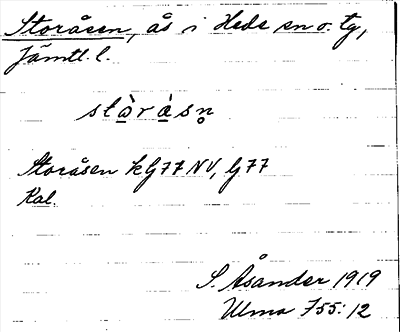 Storåsen, ås i Hede sn o. tg,
Jämtl. l.
stòràsn̥
Storåsen kG77NV, G77
Kal.
S. Åsander 1919
Ulma 755:12